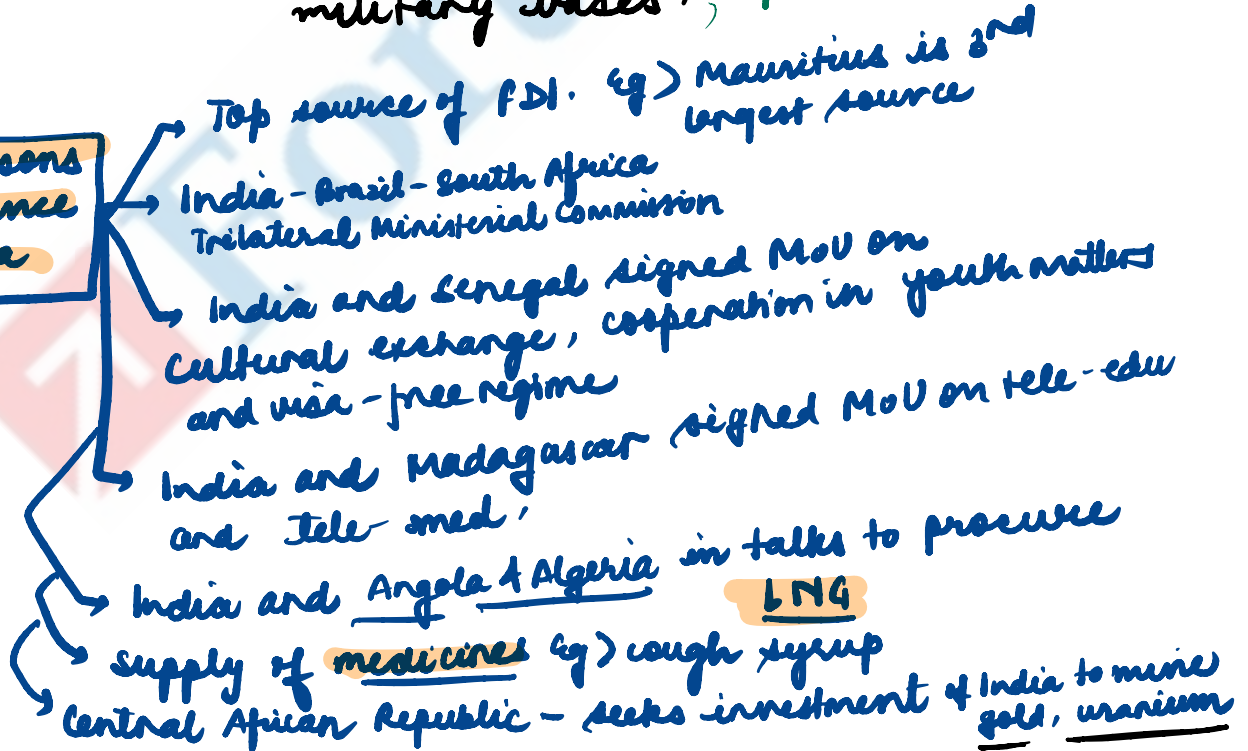 military bases,
Top source of FDI. Eg) Mauritius is 3rd
largest source
sons
nce
a
India - Brazil - South Africa
Trilateral Ministerial Commission
India and Senegal signed MoU on
Cultural exchange, cooperation in youth matters
and visa-free regime
India and Madagascar signed MoU on tele-edu
and tele-med,
India and Angola & Algeria in talks to procure
LNG
Supply of medicines Eg) cough syrup
Central African Republic - seeks investment of India to mine
gold, uranium
For